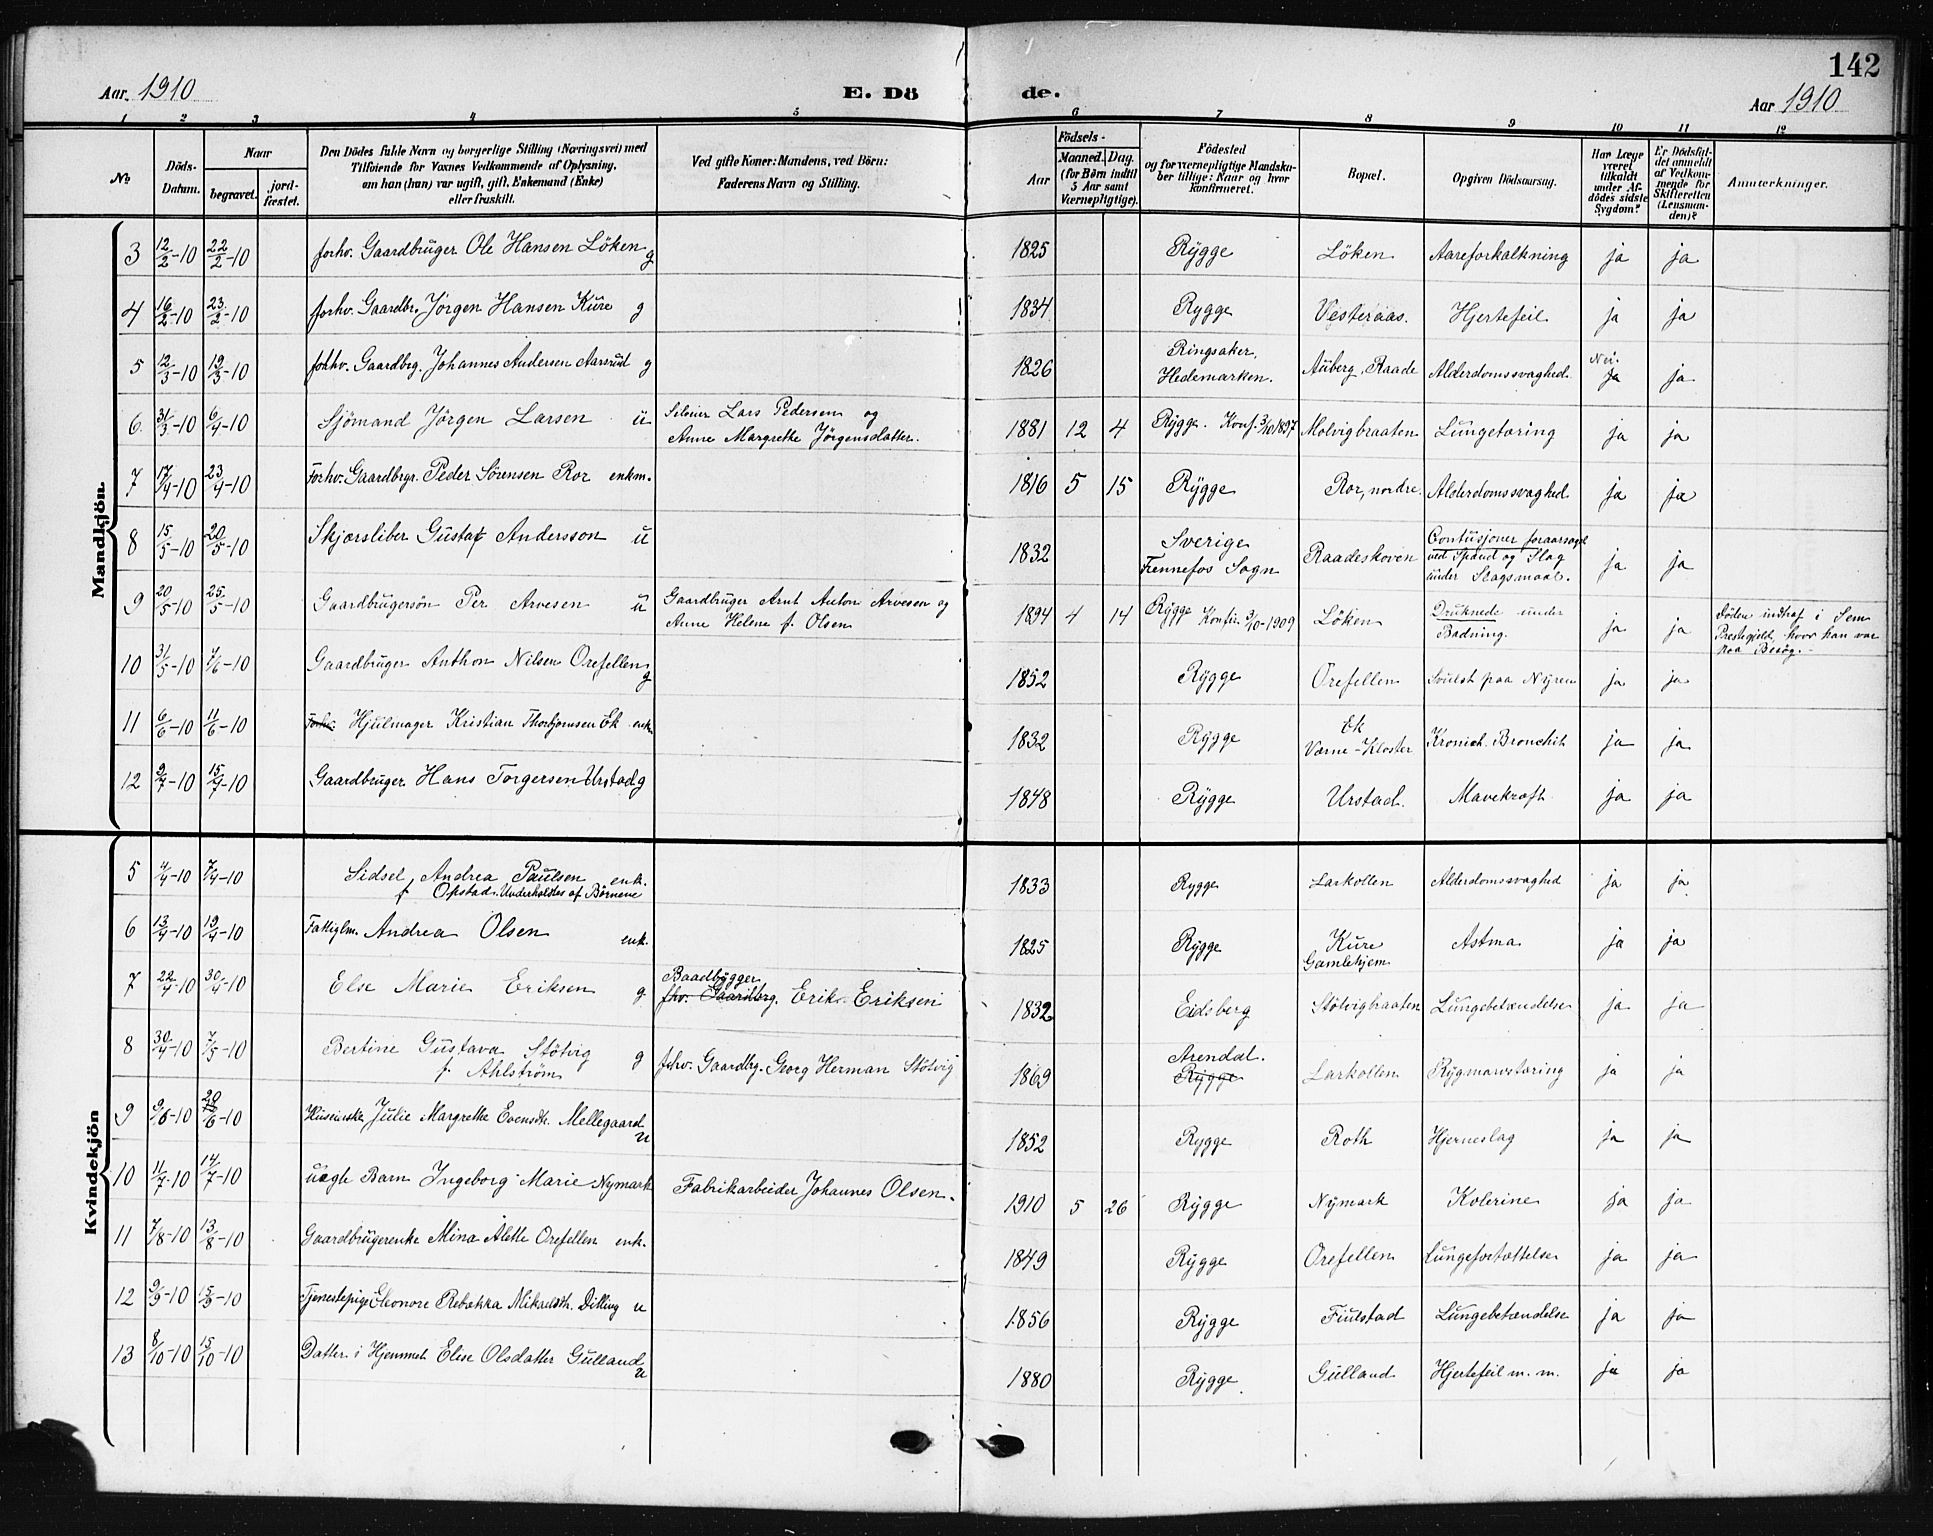 142
Aar. 1910 E. Dö de. Aar 1910
1 2 3 4 5 6 7 8 9 10 11 12
No
Döds-Datum.
Naar
begravet.
jordfæstet.
Den Dödes fulde Navn og borgerlige Stilling (Næringsvei) med
Tilföiende for Voxnes Vedkommende af Oplysning.
om han (hun) var ugift, gift, Enkemand (Enke)
eller fraskilt.
Ved gifte Koner: Mandens, ved Börn:
Faderens Navn og Stilling.
Födsels-
Aar
Maaned. Dag.
(for Börn indtil
5 Aar samt
Værnepligtige).
Födested
og for værnepligtige Mandskaber tillige: Naar og hvor
konfirmeret.
Bopæl.
Opgiven Dödsaarsag.
Har Læge
været
tilkaldt
under Afdödes sidste
Sygdom?
Er Dödsfaldet anmeldt
af Vedkommende for
Skifteretten
(Lensmanden)?
Anmærkninger.
Mandkjön.
3 12/2-10 22/2-10 forhv. Gaardbruger Ole Hansen Löken g 1825 Rygge Löken Aareforkalkning ja ja
4 16/2-10 23/2-10 forhv. Gaardbr. Jörgen Hansen Kure g 1834 Rygge Vesteraas. Hjertefeil ja ja
5 12/3-10 19/3-10 forhv. Gaardbrg. Johannes Andersen Aarsrud g 1826 Ringsaker, Hedemarken. Auberg, Raade Alderdomssvaghed. Nei. ja ja
6. 31/3-10 6/4-10 Sjömand Jörgen Larsen u Lars Pedersen og
Anne Margrethe Jörgensdatter. 1881 12 4 Rygge. Konf. 3/10 1897 Molvigbraaten Lungetæring ja ja
7 17/4-10 23/4-10 Forhv. Gaardbrgr. Peder Sörensen Ror enkm. 1816 5 15 Rygge Ror, nordre. Alderdomssvaghed ja ja
8 15/5-10 20/5-10 Skjærsliber Gustaf Andersson u 1832 Sverige Frennefos Sogn Raadeskoven Contusjoner foraarsaget
ved Spænd og Slag
under Slagsmaal. ja ja
9 20/5-10 25/5-10 Gaardbrugersön Per Arvesen u Gaardbruger Arnt Anton Arvesen og
Anne Helene f. Olsen 1894 4 14 Rygge Konfir. 3/10-1909 Löken Druknede under
Badning. ja ja Döden indtraf i Sem
Prestegjeld, hvor han var
paa Besög.
10 31/5-10 7/6-10 Gaardbruger Anthon Nilsen Orefellen g 1852 Rygge Orefellen Svulst paa Nyren ja ja
11 6/6-10 11/6-10 Forhv. Hjulmager Kristian Thorbjørnsen Ek enk. 1832 Rygge Ek
Værne-Kloster Kronich. Bronchit ja ja
12 9/7-10 15/7-10 Gaardbruger Hans Torgersen Urstad g 1848 Rygge Urstad. Mavekræft ja ja
Kvindekjön
5 4/4-10 7/4-10 Sidsel Andrea Paulsen enk.
f. Opstad. Underholdtes af Börnene 1833 Rygge Larkollen Alderdomssvaghed ja ja
6 13/4-10 19/4-10 Fattiglm. Andrea Olsen enk. 1825 Rygge Kure
Gamlehjem Astma ja ja
7 22/4-10 30/4-10 Else Marie Eriksen g. Baadbygger
fhv. Gaardbrg. Erik Eriksen 1832 Eidsberg Stötvigbraaten Lungebetændelse ja ja
8 30/4-10 7/5-10 Bertine Gustava Stötvig g
f. Ahlström forhv. Gaardbrg. Georg Herman Stötvig 1869 Arendal.
Rygge Larkollen Rygmarvstæring ja ja
9 9/6-10 20/6-10 Julie Margrethe Evensdtr. Mellegaard u 1852 Rygge Roth Hjerneslag ja ja
10 11/7-10 14/7-10 uægte Barn Ingeborg Marie Nymark Fabrikarbeider Johannes Olsen. 1910 5 26 Rygge Nymark Kolerine ja ja
11 7/8-10 13/8-10 Gaardbrugerenke Mina Alette Orefellen enk. 1849 Rygge Orefellen Lungefortættelse ja ja
12 9/9-10 15/9-10 Tjenestepige Eleonore Rebekka Mikaelsdtr. Dilling u 1856 Rygge Fiulstad Lungebetændelse ja ja
13 8/10-10 15/10-10 Datter i Hjemmet Elise Olsdatter Gulland u 1880 Rygge Gulland Hjertefeil m. m. ja ja